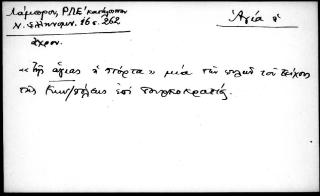 Λάμπρος, ΡΠΕ' κατάλοιπον
Ν. Ἑλληνομν. 16 σ. 262
Ἁγία ἡ
ἄχρον.
«τῆς ἁγίας ἡ πόρτα» μία τῶν πυλῶν τοῦ τείχους
τῆς Κων/πόλεως ἐπὶ τουρκοκρατίας.